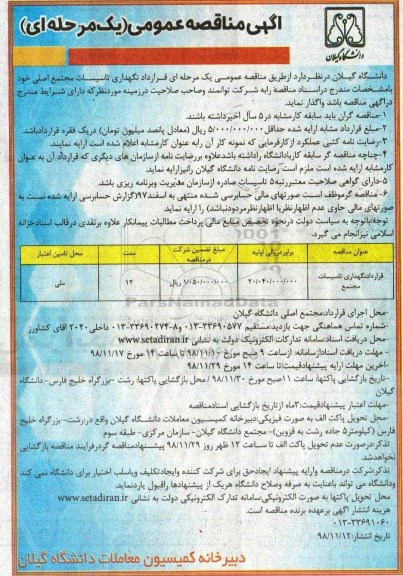 آگهی مناقصه عمومی(یک مرحله ای)
دانشگاه گیلان
دانشگاه گیلان درنظردارد ازطریق مناقصه عمومی یک مرحله ای قرارداد نگهداری تاسیسات مجتمع اصلی خود
بامشخصات مندرج دراسناد مناقصه رابه شرکت توانمند وصاحب صلاحیت درزمینه موردنظرکه دارای شرایط مندرج
درآگهی مناقصه باشد واگذار نماید.
۱-مناقصه گران باید سابقه کارمشابه در۵ سال اخیرداشته باشند.
۲-مبلغ قرارداد مشابه ارایه شده حداقل۵/۰۰۰/۰۰۰/۰۰۰ ریال (معادل پانصد میلیون تومان) دریک فقره قراردادباشد.
۳-رضایت نامه کتبی عملکرد ازکارفرمایی که نمونه کار آن رابه عنوان کارمشابه اعلام شده است ارایه نمایند.
۴-چنانچه مناقصه گر سابقه کاربادانشگاه راداشته باشدعلاوه بررضایت نامه ازسازمان های دیگری که قرارداد آن به عنوان
کارمشابه ارایه شده است ملزم است رضایت نامه دانشگاه گیلان رانیزارایه نماید.
۵-دارای گواهی صلاحیت معتبررتبه۵ تاسیسات صادره ازسازمان مدیریت وبرنامه ریزی باشد.
۶- مناقصه گرموظف است صورتهای مالی حسابرسی شده منتهی به اسفند۹۷(گزارش حسابرسی ارایه شده نسبت به
صورتهای مالی حاوی عدم اظهارنظریا اظهارنظرمردودنباشد) را ارایه نماید.
توجه:باتوجه به سیاست دولت درنحوه تخصیص منابع مالی،پرداخت مطالبات پیمانکار علاوه برنقدی درقالب اسنادخزانه
اسلامی نیزانجام می گیرد.
عنوان مناقصه برآوردریالی اولیه مبلغ تضمین شرکت درمناقصه مدت محل تامین اعتبار
قراردادنگهداری تاسیسات مجتمع ۲۰/۰۴۰/۰۰۰/۰۰۰ ۱/۰۵۰/۰۰۰/۰۰۰ ریال ۱۲ ملی
ParsNamadData
-محل اجرای قرارداد:مجتمع اصلی دانشگاه گیلان
-شماره تماس هماهنگی جهت بازدید:مستقیم ۳۳۶۹۰۵۷۷-۰۱۳ و۸-۳۳۶۹۰۲۷۴-۰۱۳ داخلی ۲۰۴۰ آقای کشاورز
-محل دریافت اسناد:سامانه تدارکات الکترونیک دولت به نشانی www.setadiran.ir
- مهلت دریافت اسنادازسامانه: ازساعت ۹ صبح مورخ ۹۸/۱۱/۱۲ تا ساعت ۱۴ مورخ ۹۸/۱۱/۱۷
-آخرین مهلت ارایه پیشنهادقیمت:تا ساعت ۱۴ مورخ ۹۸/۱۱/۲۹
-تاریخ بازگشایی پاکتها: ساعت ۱۱صبح مورخ ۹۸/۱۱/۳۰ / محل بازگشایی پاکتها: رشت -بزرگراه خلیج فارس- دانشگاه
گیلان
-مهلت اعتبار پیشنهادقیمت:۳ماه ازتاریخ بازگشایی اسنادمناقصه
-محل تحویل پاکت الف به صورت فیزیکی:دبیرخانه کمیسیون معاملات دانشگاه گیلان واقع دررشت- بزرگراه خلیج
فارس (کیلومتر۵ جاده رشت به قزوین)- مجتمع دانشگاه گیلان- سازمان مرکزی- طبقه سوم
تذکر:درصورت عدم تحویل پاکت الف تا ساعت ۱۲ ظهر روز ۹۸/۱۱/۲۹ پیشنهادمناقصه گردرفرایند مناقصه بازگشایی
نخواهدشد.
تذکر:شرکت درمناقصه وارایه پیشنهاد ایجادحق برای شرکت کننده وایجادتکلیف ویاسلب اختیار برای دانشگاه نمی کند
ودانشگاه می تواند باعنایت به صرفه وصلاح دانشگاه هریک از پیشنهادها راقبول یاردنماید.
محل تحویل پاکتها به صورت الکترونیکی:سامانه تدارک الکترونیکی دولت به نشانی www.setadiran.ir
هزینه انتشار آگهی برعهده برنده مناقصه است.
۰۱۳-۳۳۶۹۱۰۶۰
تاریخ انتشار:۹۸/۱۱/۱۲
دبیرخانه کمیسیون معاملات دانشگاه گیلان